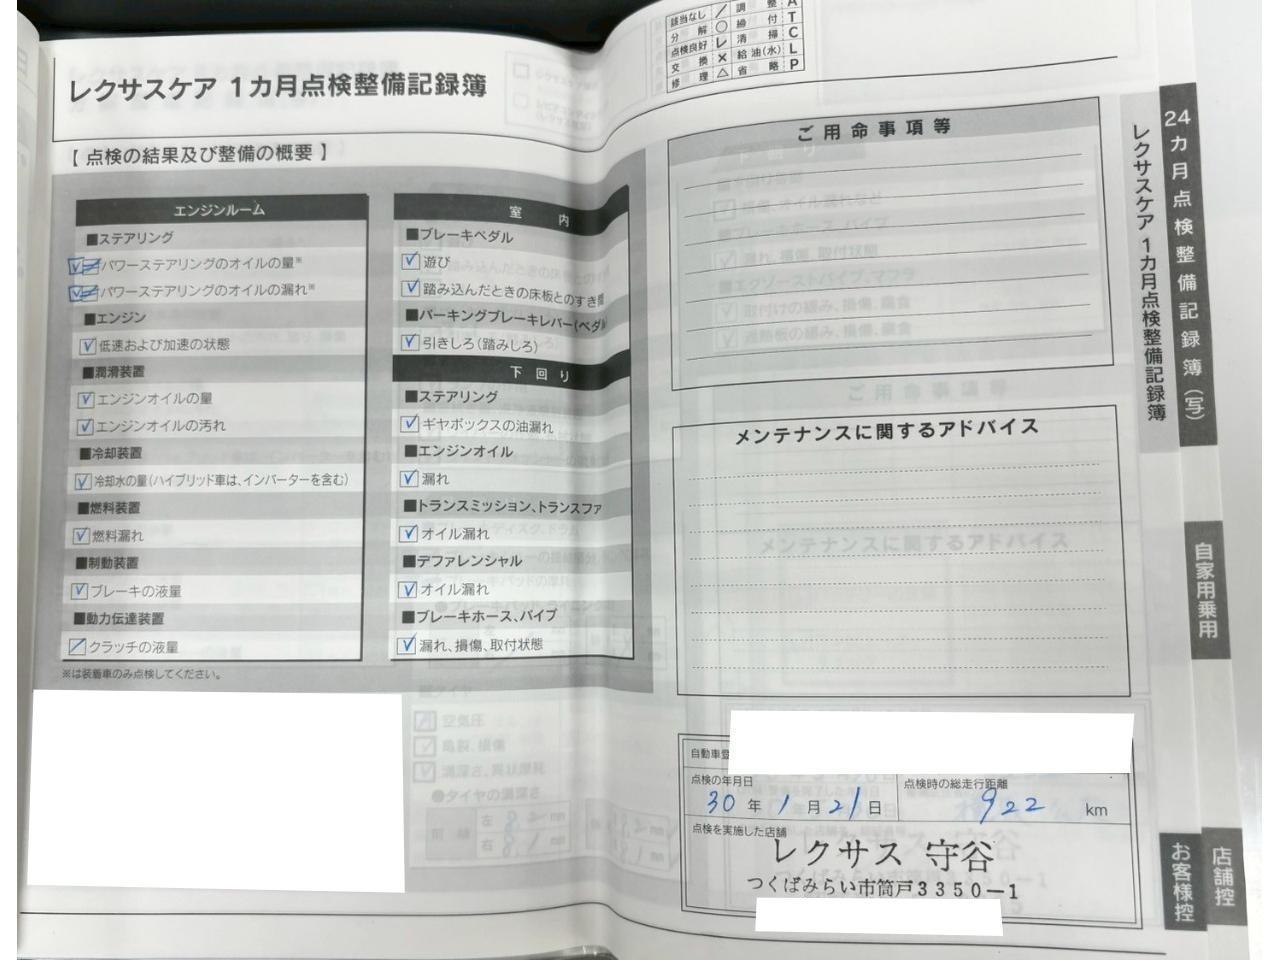 レクサスケア 1カ月点検整備記録簿
【 点検の結果及び整備の概要 】
エンジンルーム
■ステアリング
パワーステアリングのオイルの量※
パワーステアリングのオイルの漏れ※
■エンジン
低速および加速の状態
■潤滑装置
エンジンオイルの量
エンジンオイルの汚れ
■冷却装置
冷却水の量(ハイブリッド車は、インバーターを含む)
■燃料装置
燃料漏れ
■制動装置
ブレーキの液量
■動力伝達装置
クラッチの液量
※は装着車のみ点検してください。
室 内
■ブレーキペダル
遊び
踏み込んだときの床板とのすき間
■パーキングブレーキレバー(ペダル
引きしろ(踏みしろ)
下 回 り
■ステアリング
ギヤボックスの油漏れ
■エンジンオイル
漏れ
■トランスミッション、トランスファ
オイル漏れ
■デファレンシャル
オイル漏れ
■ブレーキホース、パイプ
漏れ、損傷、取付状態
該当なし ／ 調 整 A
分 解 ○ 締 付 T
点検良好 レ 清 掃 C
交 換 × 給油(水) L
修 理 △ 省 略 P
ご用命事項等
メンテナンスに関するアドバイス
自動車登
点検の年月日
30 年 1 月 21 日
点検時の総走行距離
922 km
点検を実施した店舗
レクサス 守谷
つくばみらい市筒戸3350-1
24カ月点検整備記録簿(写)
レクサスケア 1カ月点検整備記録簿
自家用乗用
お客様控
店舗控